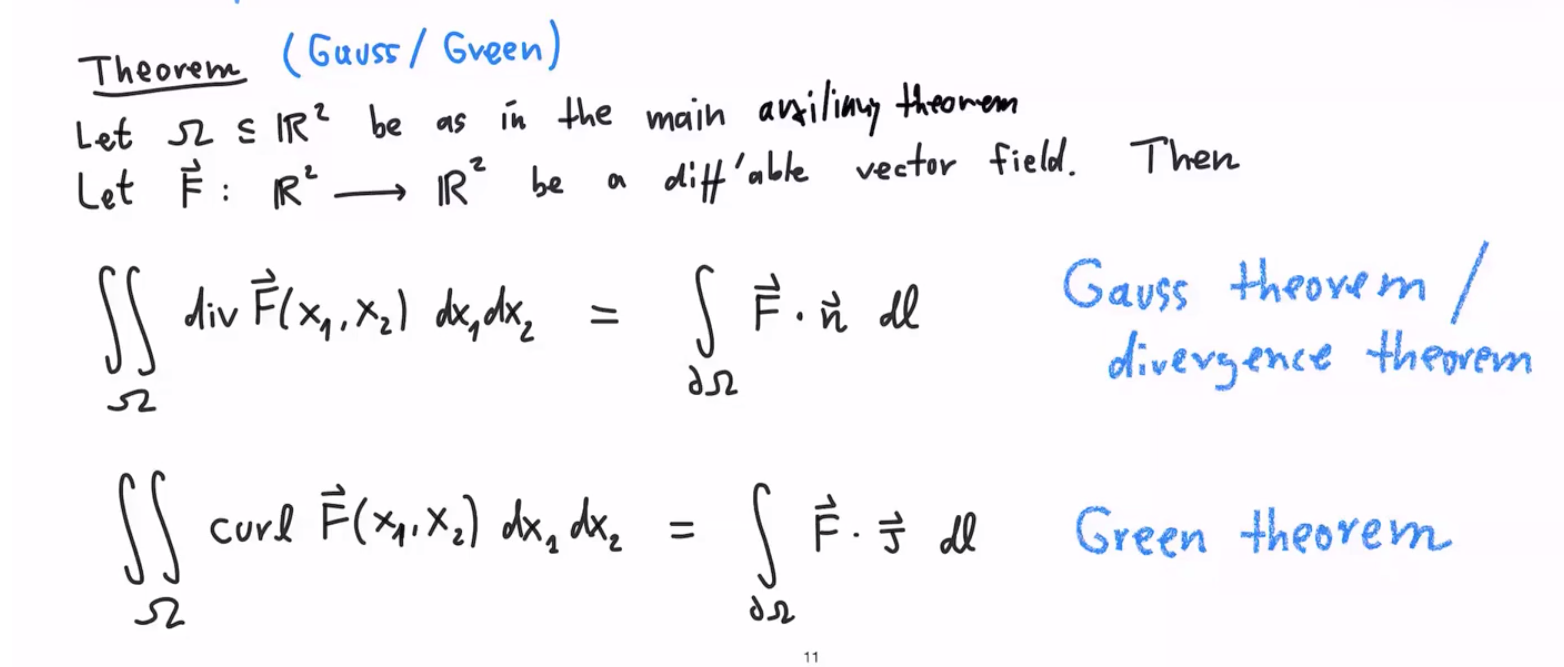 Theorem (Gauss / Green)
Let Ω ⊆ ℝ² be as in the main auxiliary theorem
Let F⃗ : ℝ² ⟶ ℝ² be a diff'able vector field. Then
∬_Ω div F⃗(x₁,x₂) dx₁dx₂ = ∫_∂Ω F⃗ · n⃗ dl Gauss theorem /
divergence theorem
∬_Ω curl F⃗(x₁,x₂) dx₁ dx₂ = ∫_∂Ω F⃗ · τ⃗ dl Green theorem
11